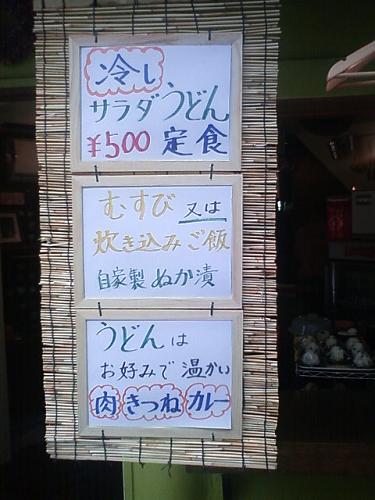 冷し
サラダうどん
¥500 定食
むすび 又は
炊き込みご飯
自家製 ぬか漬
うどんは
お好みで 温かい
肉 きつね カレー